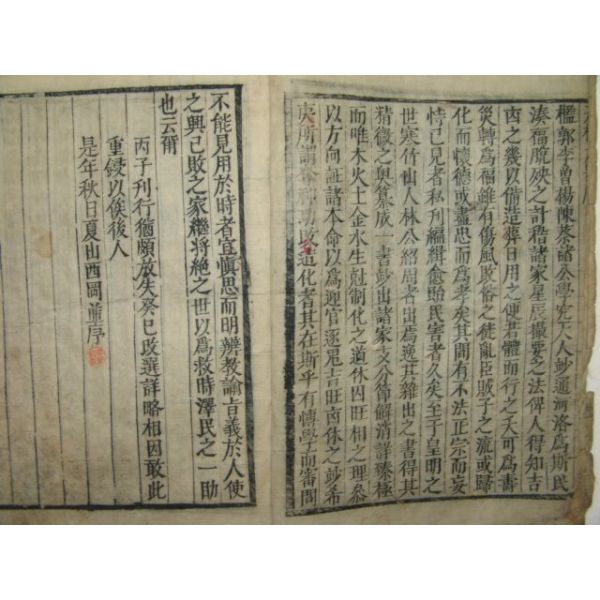 楹郭李曾楊陳蔡諸公學究天人妙通河洛爲斯民
湊福脫殃之計稽諸家星辰撮要之法俾人得知吉
凶之幾以備造葬日用之便若體而行之夭可爲壽
災轉爲福雖有傷風敗俗之徒亂臣賊子之流或歸
化而懷德或盡忠而爲孝矣其間有不法正宗而妄
恃己見者私刊編緝愈貽民害者久矣至于皇明之
世寒竹山人林公紹周者出爲逸其雜出之書得其
精微之奧纂成一書鈔出諸家文分節解淸詳臻極
而唯木火土金水生尅制化之道休囚旺相之理叅
以方向証諸本命以爲迎官逐鬼吉旺凶休之妙希
夷所謂奪神功改造化者其在斯乎有博學而審問
不能見用於時者宜愼思而明辨敎諭旨義於人使
之興已敗之家繼將絕之世以爲救時澤民之一助
也云爾
丙子刊行猶頗放失癸巳改選詳略相因敢此
重鋟以俟後人
是年秋日夏山西岡並序